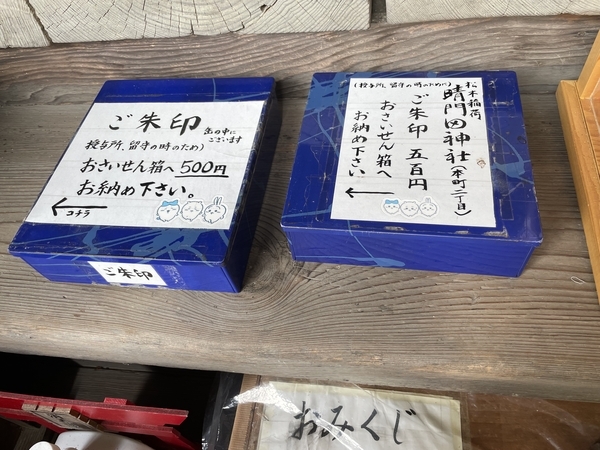 ご朱印 缶の中に
ございます
授与所、留守の時のため)
おさいせん箱へ 500円
お納め下さい。
コチラ
ご朱印
松本稲荷
晴門田神社(本町二丁目)
(授与所、留守の時のために)
ご朱印 五百円
おさいせん箱へ
お納め下さい
おみくじ